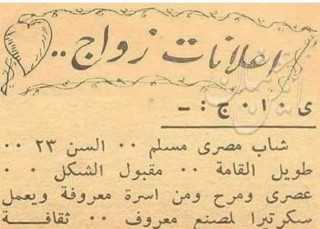 اعلانات زواج..
ى ٠ ا ٠ ج : ـ
شاب مصرى مسلم ٠٠ السن ٢٣ ٠٠
طويل القامة ٠٠ مقبول الشكل ٠٠
عصرى ومرح ومن اسرة معروفة ويعمل
سكرتيرا لمصنع معروف ٠٠ ثقافة